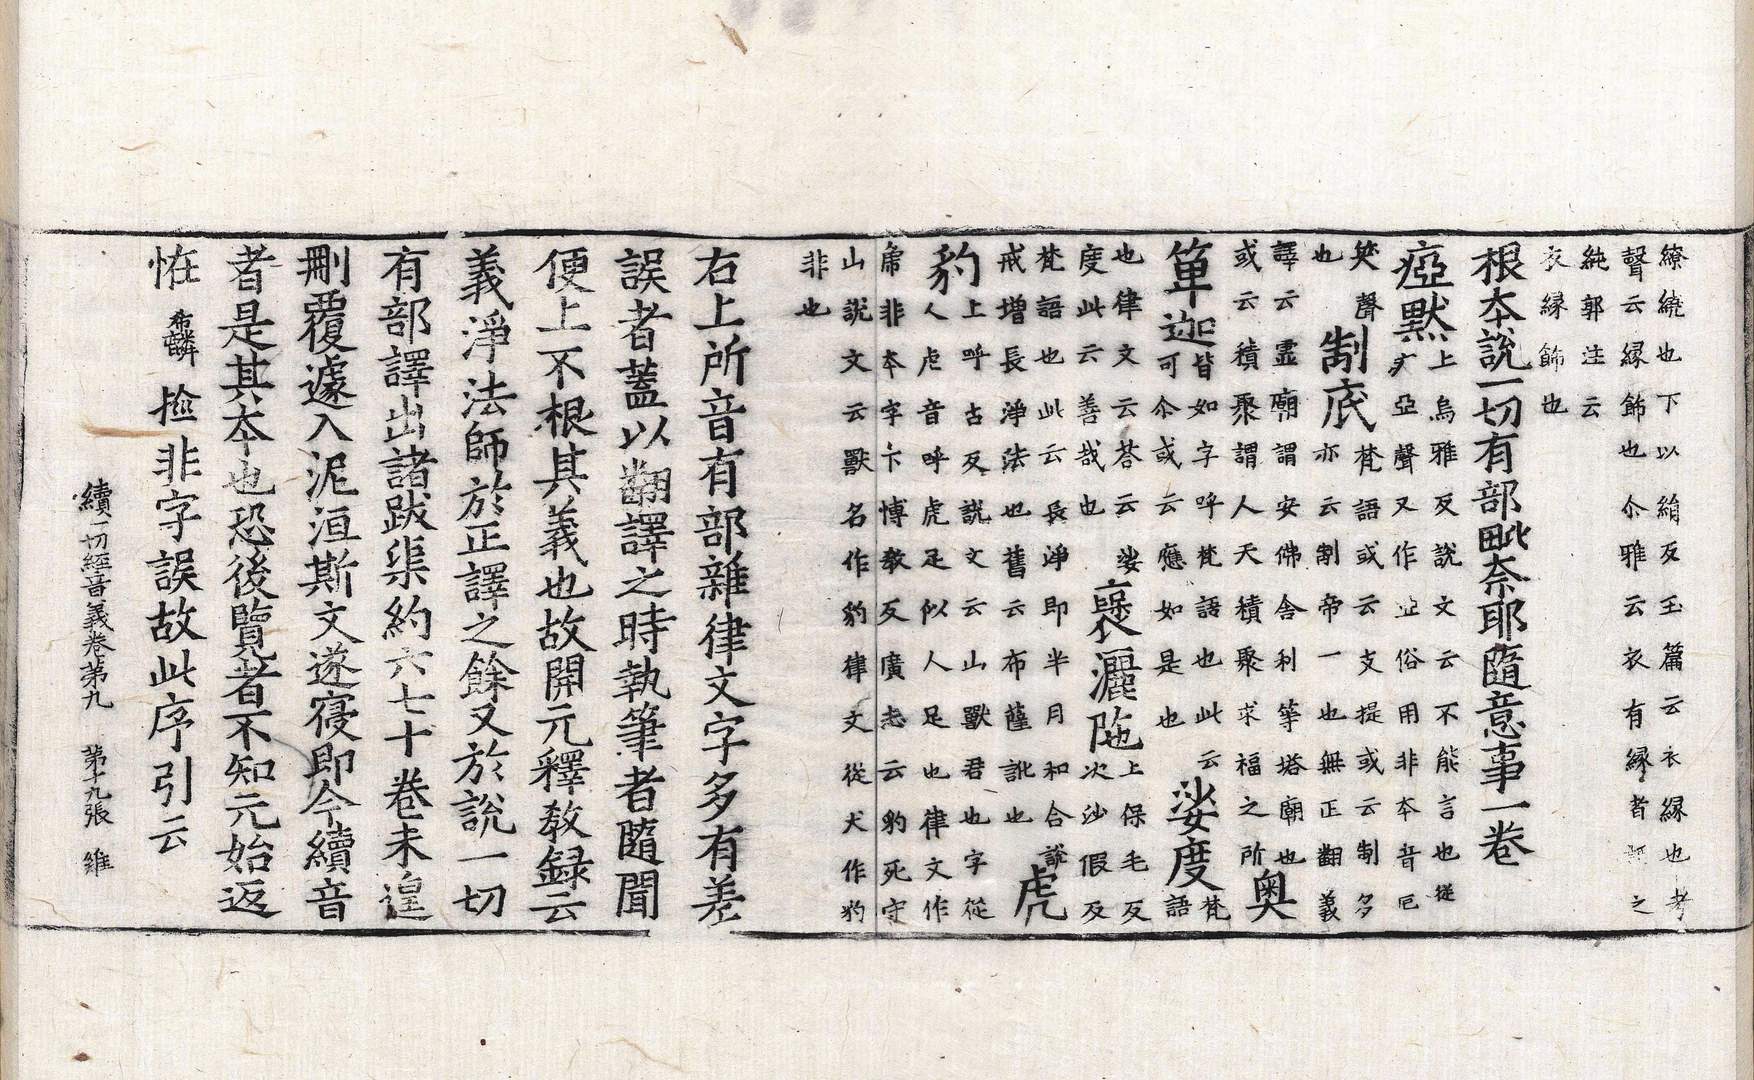 繚繞也下以絹反玉篇云衣縁也考
聲云縁飾也尒雅云衣有縁者謂之
純郭注云
衣縁飾也
根本說一切有部毗奈耶隨意事一卷
瘂默
上烏雅反說文云不能言也從
疒亞聲又作瘂俗用非本音厄
𥬇聲
也
制底
梵語或云支提或云制多
亦云制帝一也無正翻義
譯云靈廟謂安佛舎利等塔廟也
或云積聚謂人天積聚求福之所
奥
箄迦
皆如字呼梵語也此云
可尒或云應如是也
娑度
梵
語
也律文云荅云娑
度此云善哉也
褒灑陁
上保毛反
次沙假反
梵語也此云長淨即半月和合說
戒增長淨法也舊云布薩訛也
虎
豹
上呼古反說文云山獸君也字從
人虍音呼虎足似人足也律文作
乕非本字下博教反廣志云豹死守
山說文云獸名作豹律文從犬作犳
非也
右上所音有部雜律文字多有差
誤者蓋以翻譯之時執筆者隨聞
便上不根其義也故開元釋教録云
義淨法師於正譯之餘又於說一切
有部譯出諸跋渠約六七十卷未遑
刪覆遽入泥洹斯文遂寑即今續音
者是其本也恐後覽者不知元始返
恠希麟撿非字誤故此序引云
續一切經音義卷第九 第十九張 維